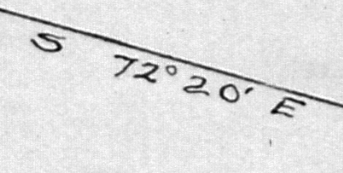 S 72° 20' E